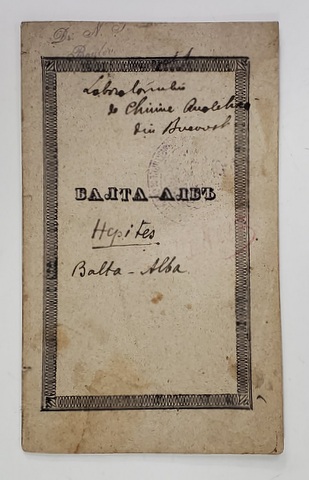 Dr. N. S
Laboratorului
de Chimie Analitica
din Bucuresti
БАЛТА-АЛБЪ
Hepites
Balta-Alba